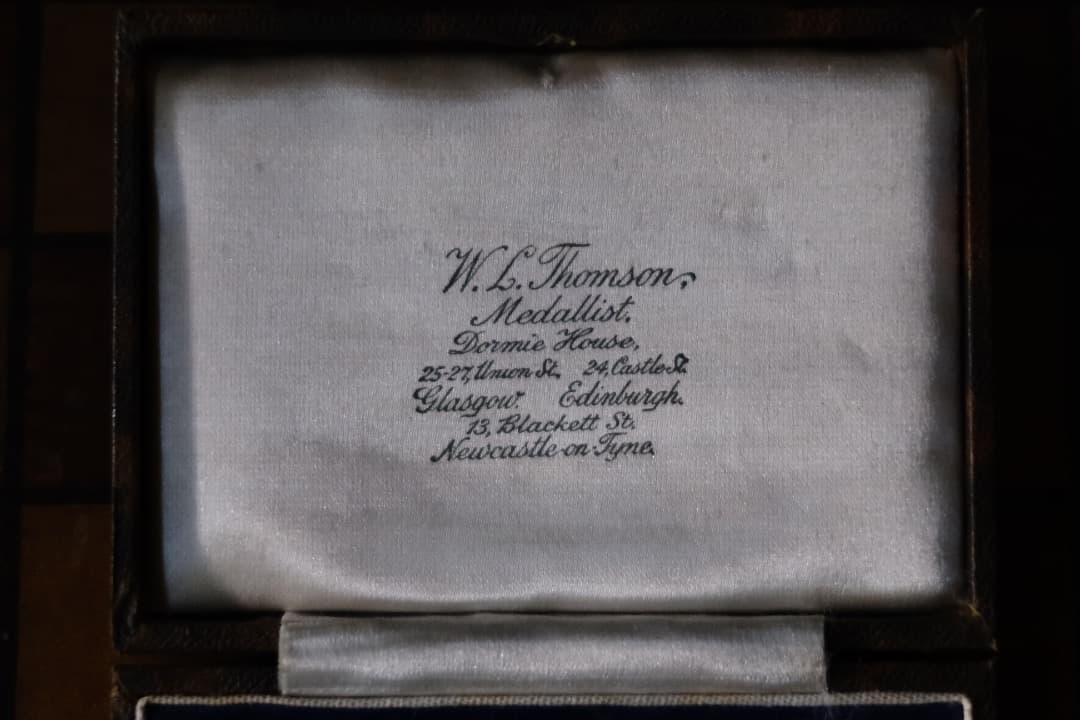 W. L. Thomson,
Medallist.
Dormie House,
25-27, Union St. 24, Castle St.
Glasgow. Edinburgh.
13, Blackett St.
Newcastle-on-Tyne.